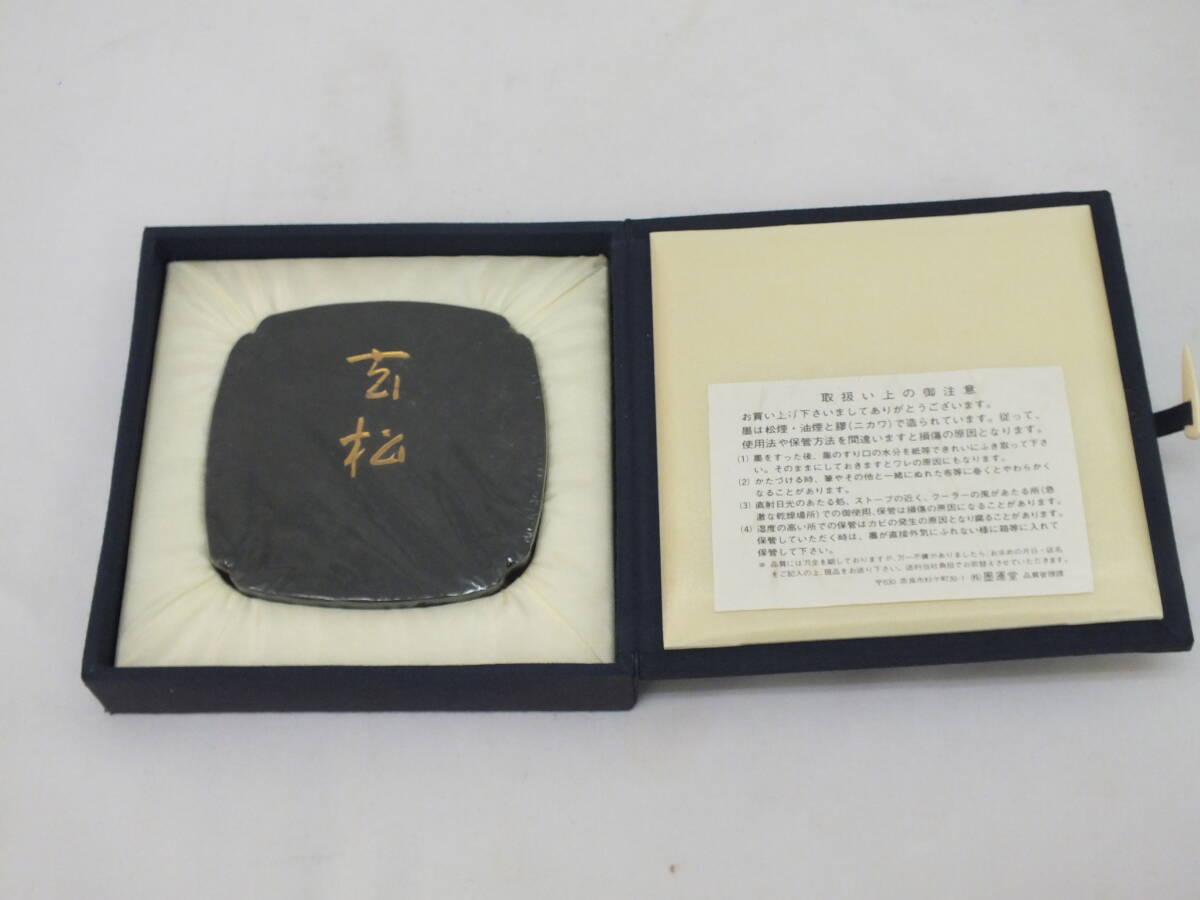 玄
松
取扱い上の御注意
お買い上げ下さいましてありがとうございます。
墨は松煙・油煙と膠(ニカワ)で造られています。従って、
使用法や保管方法を間違いますと損傷の原因となります。
(1) 墨をすった後、墨のすり口の水分を紙等できれいにふき取って下さ
い。そのままにしておきますとワレの原因にもなります。
(2) かたづける時、筆やその他と一緒にぬれた布等に巻くとやわらかく
なることがあります。
(3) 直射日光のあたる処、ストーブの近く、クーラーの風があたる所(急
激な乾燥場所)での御使用、保管は損傷の原因になることがあります。
(4) 湿度の高い所での保管はカビの発生の原因となり腐ることがあります。
保管していただく時は、墨が直接外気にふれない様に箱等に入れて
保管して下さい。
※ 品質には万全を期しておりますが、万一不備がありましたら、お求めの月日・店名
をご記入の上、現品をお送り下さい。送料当社負担でお取替えさせていただきます。
〒630 奈良市杉ケ町30-1 ㈱墨運堂 品質管理課